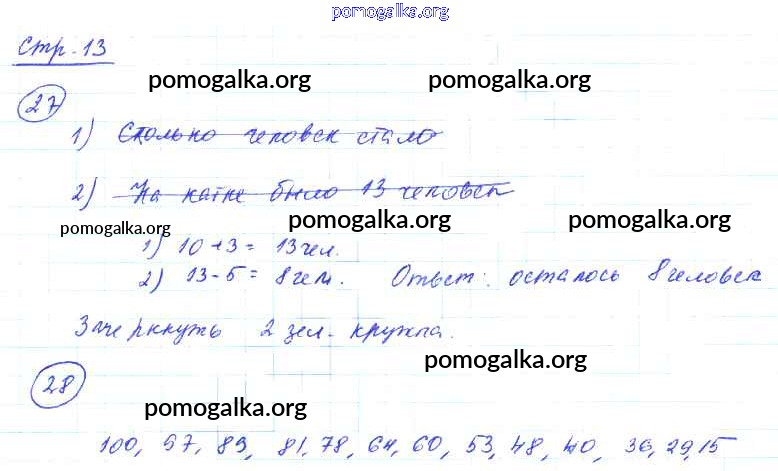 pomogalka.org
Стр. 13
pomogalka.org pomogalka.org
27
1) Столько человек стало
2) На катке было 13 человек
pomogalka.org pomogalka.org pomogalka.org
1) 10+3= 13 чел.
2) 13-5= 8 чел. Ответ: осталось 8 человек
Зачеркнуть 2 зел. кружка.
pomogalka.org
28
pomogalka.org
100, 97, 89, 81, 78, 64, 60, 53, 48, 40, 36, 29, 15